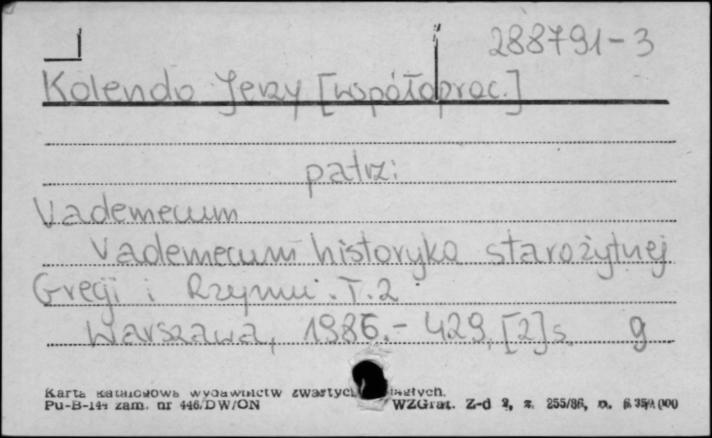 288791-3
Kolendo Jerzy [współoprac.]
patrz:
Vademecum
Vademecum historyka starożytnej
Grecji i Rzymu. T. 2.
Warszawa, 1986.- 429, [2] s. g
Karta katalogowa wydawnictw zwartych
Pu-B-144 zam. nr 446/DW/ON WZGraf. Z-d 2, z. 255/86, n.